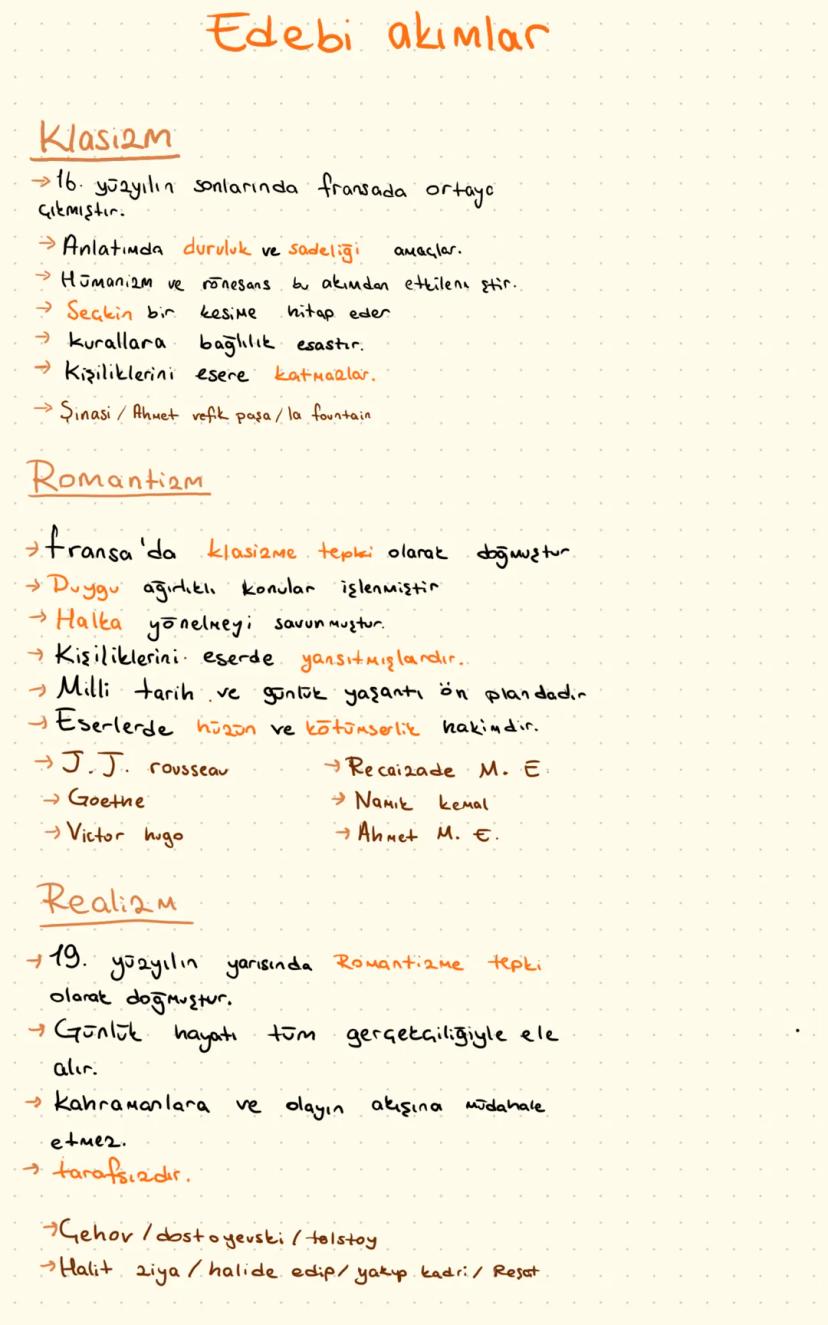 Edebi akımlar
Klasizm
→ 16. yüzyılın sonlarında fransada ortaya
çıkmıştır.
→ Anlatımda duruluk ve sadeliği amaçlar.
→ Hümanizm ve rönesans bu akımdan etkilenmiştir.
→ Seçkin bir kesime hitap eder
→ kurallara bağlılık esastır.
→ Kişiliklerini esere katmazlar.
→ Şinasi / Ahmet vefik paşa / la fountain
Romantizm
→ fransa'da klasizme tepki olarak doğmuştur
→ Duygu ağırlıklı konular işlenmiştir
→ Halka yönelmeyi savunmuştur.
→ Kişiliklerini eserde yansıtmışlardır.
→ Milli tarih ve günlük yaşantı ön plandadır
→ Eserlerde hüzün ve kötümserlik hakimdir.
→ J.J. rousseau → Recaizade M. E.
→ Goethe → Namık kemal
→ Victor hugo → Ahmet M. E.
Realizm
→ 19. yüzyılın yarısında Romantizme tepki
olarak doğmuştur.
→ Günlük hayatı tüm gerçekçiliğiyle ele
alır.
→ kahramanlara ve olayın akışına müdahale
etmez.
→ tarafsızdır.
→ Çehov / dostoyevski / tolstoy
→ Halit ziya / halide edip / yakup kadri / Reşat